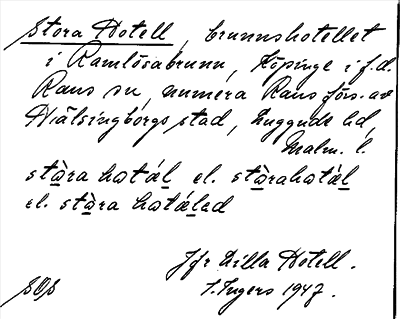 Stora Hotell, brunnshotellet
i Ramlösabrunn, Köpinge i f.d.
Raus sn, numera Raus förs. av
Hälsingborgs stad, Luggude hd,
Malm. l.
stòra hotäl el. stòrahotäl
el. stòra hotälad
Jfr Lilla Hotell.
I. Ingers 1947.